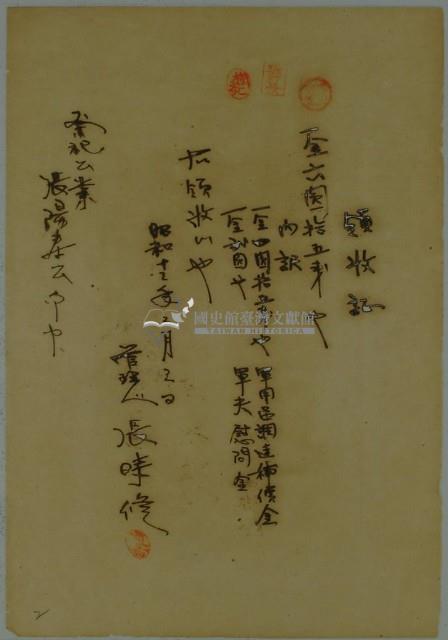 領收証
一金六圓一拾五錢也
內訳
一金四圓拾五錢也 軍用品調達補償金
一金弍圓也 軍夫慰問金
右領收候也
昭和十三年二月三日
管理人 張
祭祀公業
張陽春公 御中
國史館臺灣文獻館
TAIWAN HISTORICA
2